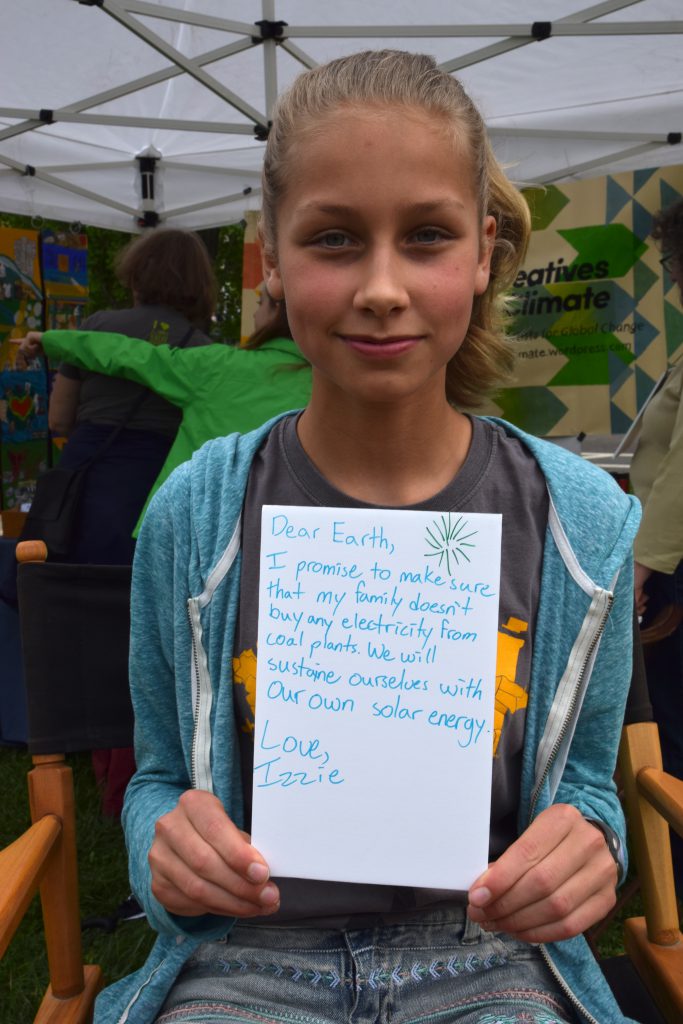 Dear Earth,
I promise to make sure
that my family doesn't
buy any electricity from
coal plants. We will
sustaine ourselves with
our own solar energy.
Love,
Izzie
eatives
Climate
for Global Change
mate.wordpress.com